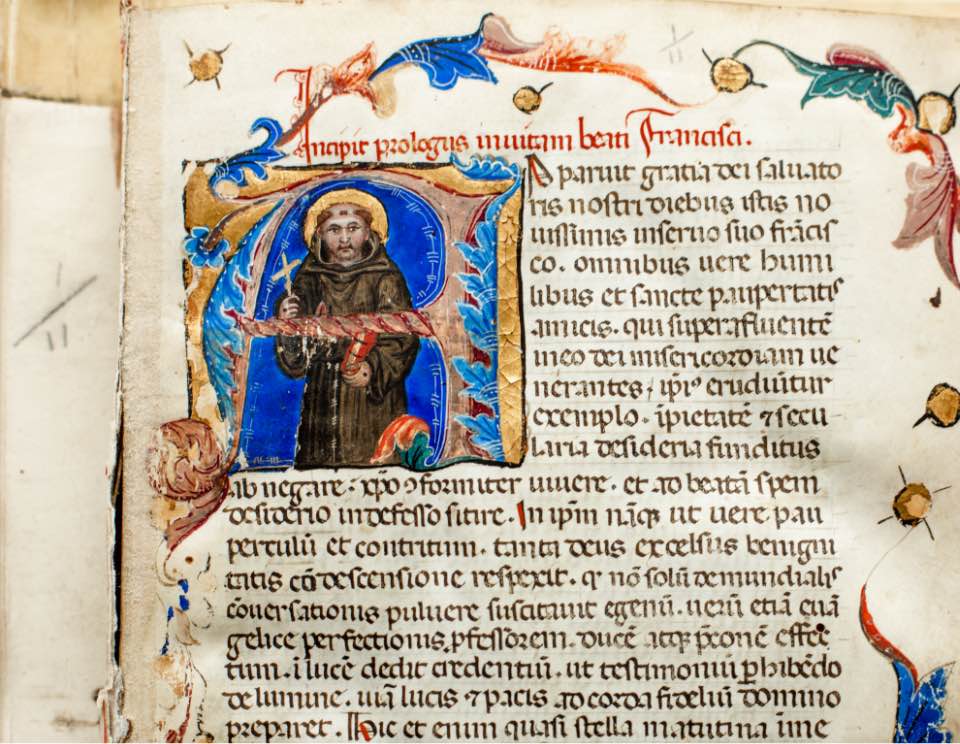 Incipit prologus in uitam beati Francisci.
Aparuit gratia dei saluato
ris nostri diebus istis no
uissimis in seruo suo francis
co. omnibus uere humi
libus et sancte paupertatis
amicis. qui superafluentē
in eo dei misericordiam ue
nerantes, ip̄iꝰ erudiūtur
exemplo. īpietatē ⁊ secu-
laria desideria funditus
ab negare. xp̄o ꝯformiter uiuere. et ad beatā spem
desiderio indefesso sitire. In ip̄m nāqꝫ ut uere pau
perculū et contritum. tanta deus excelsus benigni
tatis cōdescensione respexit. qͥ nō solū de mundialis
cōuersationis puluere suscitauit egenū. uerū etiā euā
gelice perfectionis ꝓfessorem. ducē atqꝫ p̄conē effec
tum. ī lucē dedit credentiū. ut testimoniū ꝑhibēdo
de lumine. uiā lucis ⁊ pacis ad corda fideliū domino
preparet. Hic et enim quasi stella matutina ī me